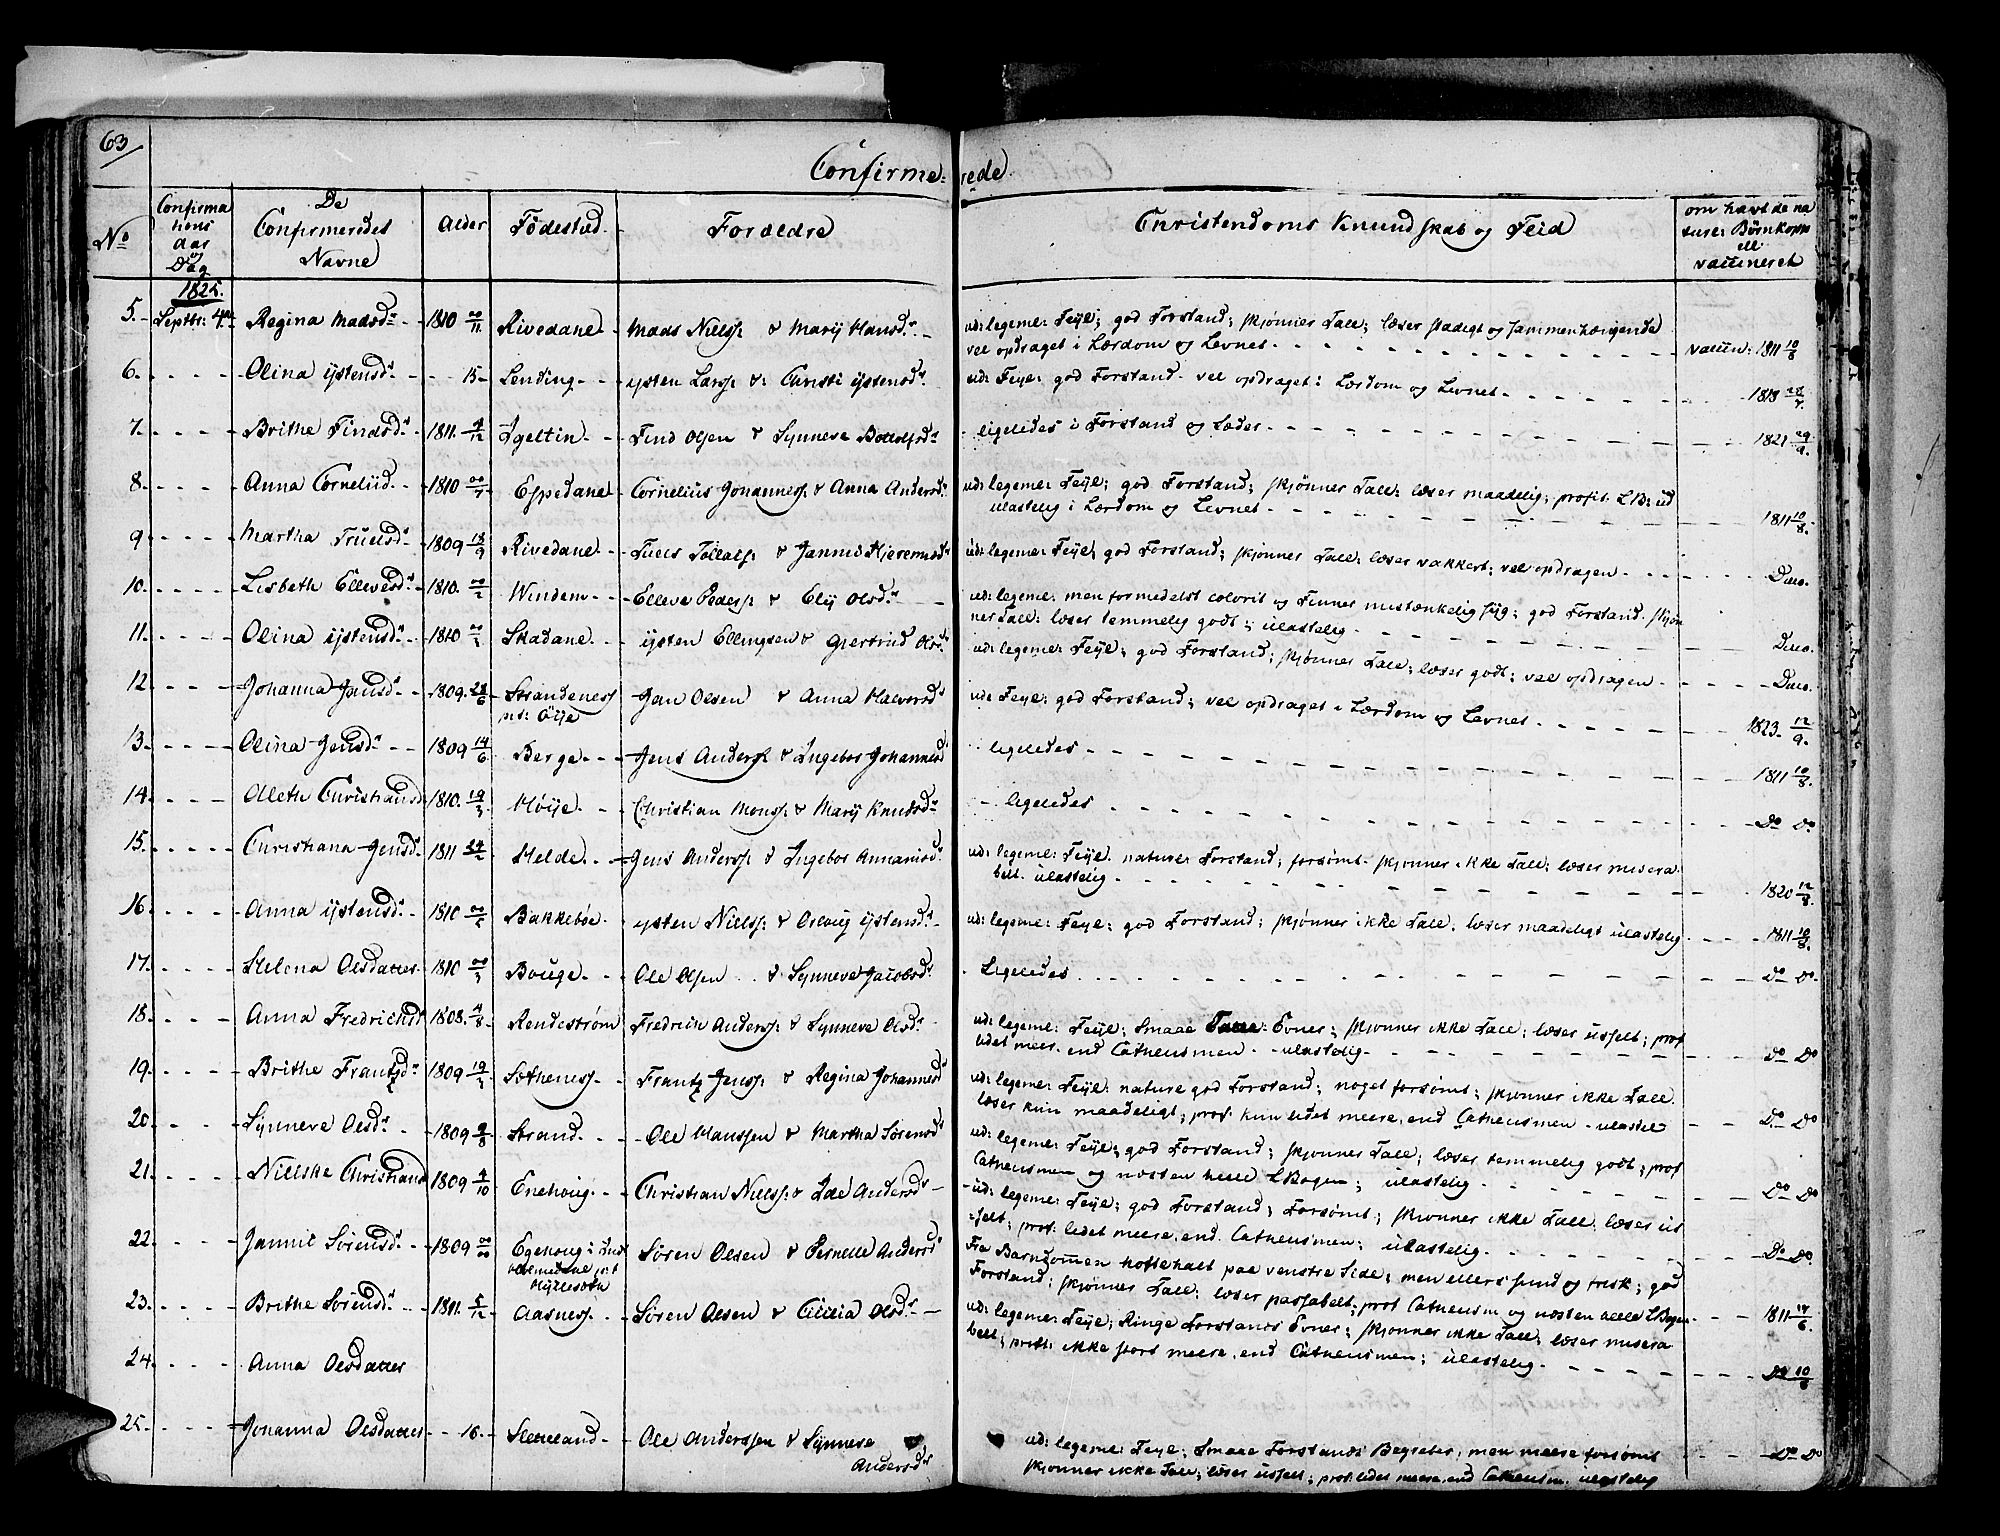 63
Confirme=rede.
No
Confirma
tions
aar
og
Dag
De
Confirmeredes
Navne
Alder
Födested.
Forældre
Christendoms Kundskab og Fliid
om havt de na
turl: Børnkopp
ell
vaccineret
1825.
5. Septbr: 4de Regina Madsdr 1810 00/11 Rivedane Mads Nielss: & Marÿ Hansdr
ud: legeml: Feÿl; god Forstand; skjønner Tale; læser stadigt og sammenhængende
vel opdraget i Lærdom og Levnet. vaccin: 1811 10/8
6. Olina ÿstensdr 15 Lending ÿsten Larss: & Christi ÿstensdr
ud: Feÿl: god Forstand. vel opdraget i Lærdom og Levnet. 1818 28/7.
7. Brithe Findsdr 1811. 4/12 Igeltin Find Olsen & Sÿnneve Bottolfsdr
ligeledes i Forstand og Sæder. 1821 29/9.
8. Anna Cornelüd. 1810 00/7 Espedane Cornelius Johanness: & Anna Andersdr
ud: legeml: Feÿl; god Forstand; skjønner Tale; læser maadelig; profit. LB: ud
ulastelig i Lærdom og Levnet. 1811 10/8.
9. Martha Truelsdr 1809 18/9 Rivedane Truels Tollefs: &
ud: legeml: Feÿl; god Forstand; skjønner Tale: læser vakkert; vel opdragen Dito.
10. Lisbeth Ellevesdr 1810. 00/2 Windem Elleve Peders: & Elÿ Olsdr
ud: legeml: men formedelst colorit og Finner mistænkelig syg; god Forstand. skjøn
ner Tale: læser temmelig godt; ulastelig
11. Olina ÿstensdr 1810 Skadane ÿsten Ellingsen & Gjertrud Olsdr Dito.
ud: legeml: Feÿl; god Forstand; skjønner Tale; læser godt; vel opdragen
12 Johanna Jansdr 1809. 28/6 Strandeness Jan Olsen & Anna Halvorsdr Dito.
ud: Feÿl: god Forstand; vel opdraget i Lærdom og Levnet. 1823. 12/9.
13. Olina Jensdr 1809 14/6 Berge Jens Anderss: & Ingebor Johannesd
ligeledes 1811 10/8
14. Aleth Christiansd 1810. 19/3 Høÿe Christian Monss: & Marÿ Knudsdr
ligeledes Do Do
15. Christiana Jensd. 1811 24/2 Helde Jens Anderss: & Ingebor
ud: legeml: Feÿl. naturl: Forstand; forsömt. skjønner ikke Tale; læser misera
belt. ulastelig 1820 12/8.
16. Anna ÿstensdr 1810 Bakkebøe ÿsten Nielss: & Oslaug ÿstensdr
ud: legeml: Feÿl; god Forstand; skjønner ikke Tale; læser maadeligt ulastelig 1811 10/8.
17. Helena Olsdatter 1810 00/3 Bouge Ole Olsen & Sÿnneve Jacobsdr
Ligeledes Do Do
18. Anna Fredrichsd 1808. 4/8 Rendeström Fredrich Anderss: & Sÿnneve Olsdr
ud: legeml: Feÿl; Smaae Evner; skjønner ikke Tale; læser usselt; prof.
lidet meere. end Cathecismen. ulastelig Do Do
19. Brithe Frantzdr 1809 19/3 Sætheness Frantz Jenss: & Regina Johannesd
ud: legeml: Feÿl: nature god Forstand; noget forsömt; skjønner ikke Tale.
læser kun maadeligt; prof. kun lidet meere, end Cathecismen - ulastel Do Do
20. Sÿnneve Olsdr 1809 9/8 Strand. Ole Hanssen & Martha Sørensd
ud: legeml: Feÿl; god Forstand; skjønner Tale; læser temmelig godt; prof.
Cathecismen og næsten hele LBogen; ulastelig Do Do
21. Nielske Christiansd 1809 4/10 Enehoug Christian Nielss: & Ide Andersdr
ud: legeml: Feÿl; god Forstand; Forsømt; skjønner ikke Tale. læser us
selt; prof: lidet meere, end. Cathecismen; ulastelig Do Do.
22. Jannic Sörensdr 1809 00/00 Egehoug Sören Olsen & Pernelle Andersd
Fra Barndommen höftehalt paa venstre Side; men ellers sund og frisk; god
Forstand; skjønner Tale: læser passabelt; prof Cathecism og næsten alle LBogen 1811 14/6.
23. Brithe Sörensdr 1811. 5/12 Aasness Sören Olsen & Cicilia Olsdr
ud: legeml: Feÿl; Ringe Forstands Evner; skjønner ikke Tale; læser misera
belt; profit: ikke stort meere, end Cathecismen; ulastelig. Do 10/8
24. Anna Olsdatter
25. Johanna Olsdatter 16. Sletteland Ole Anderssen & Sÿnneve
Andersdr
ud: legeml: Feÿl; Smaae Forstands Begreber, men meere forsömt
skjønner ikke Tale; læser usselt; prof. lidet meere, end Cathecism. ulastelig Do Do